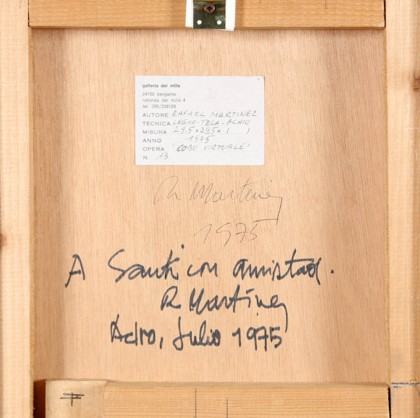 galleria dei mille
24100 bergamo
rotonda dei mille 4
AUTORE RAFAEL MARTINEZ
TECNICA LEGNO-TELA-ACRIL
MISURA 29,5 x 29,5 x ( )
ANNO 1975
OPERA "CUBO VIRTUALE"
N. 13
R Martinez
1975
A Santi con amistad.
R Martinez
Adro, Julio 1975